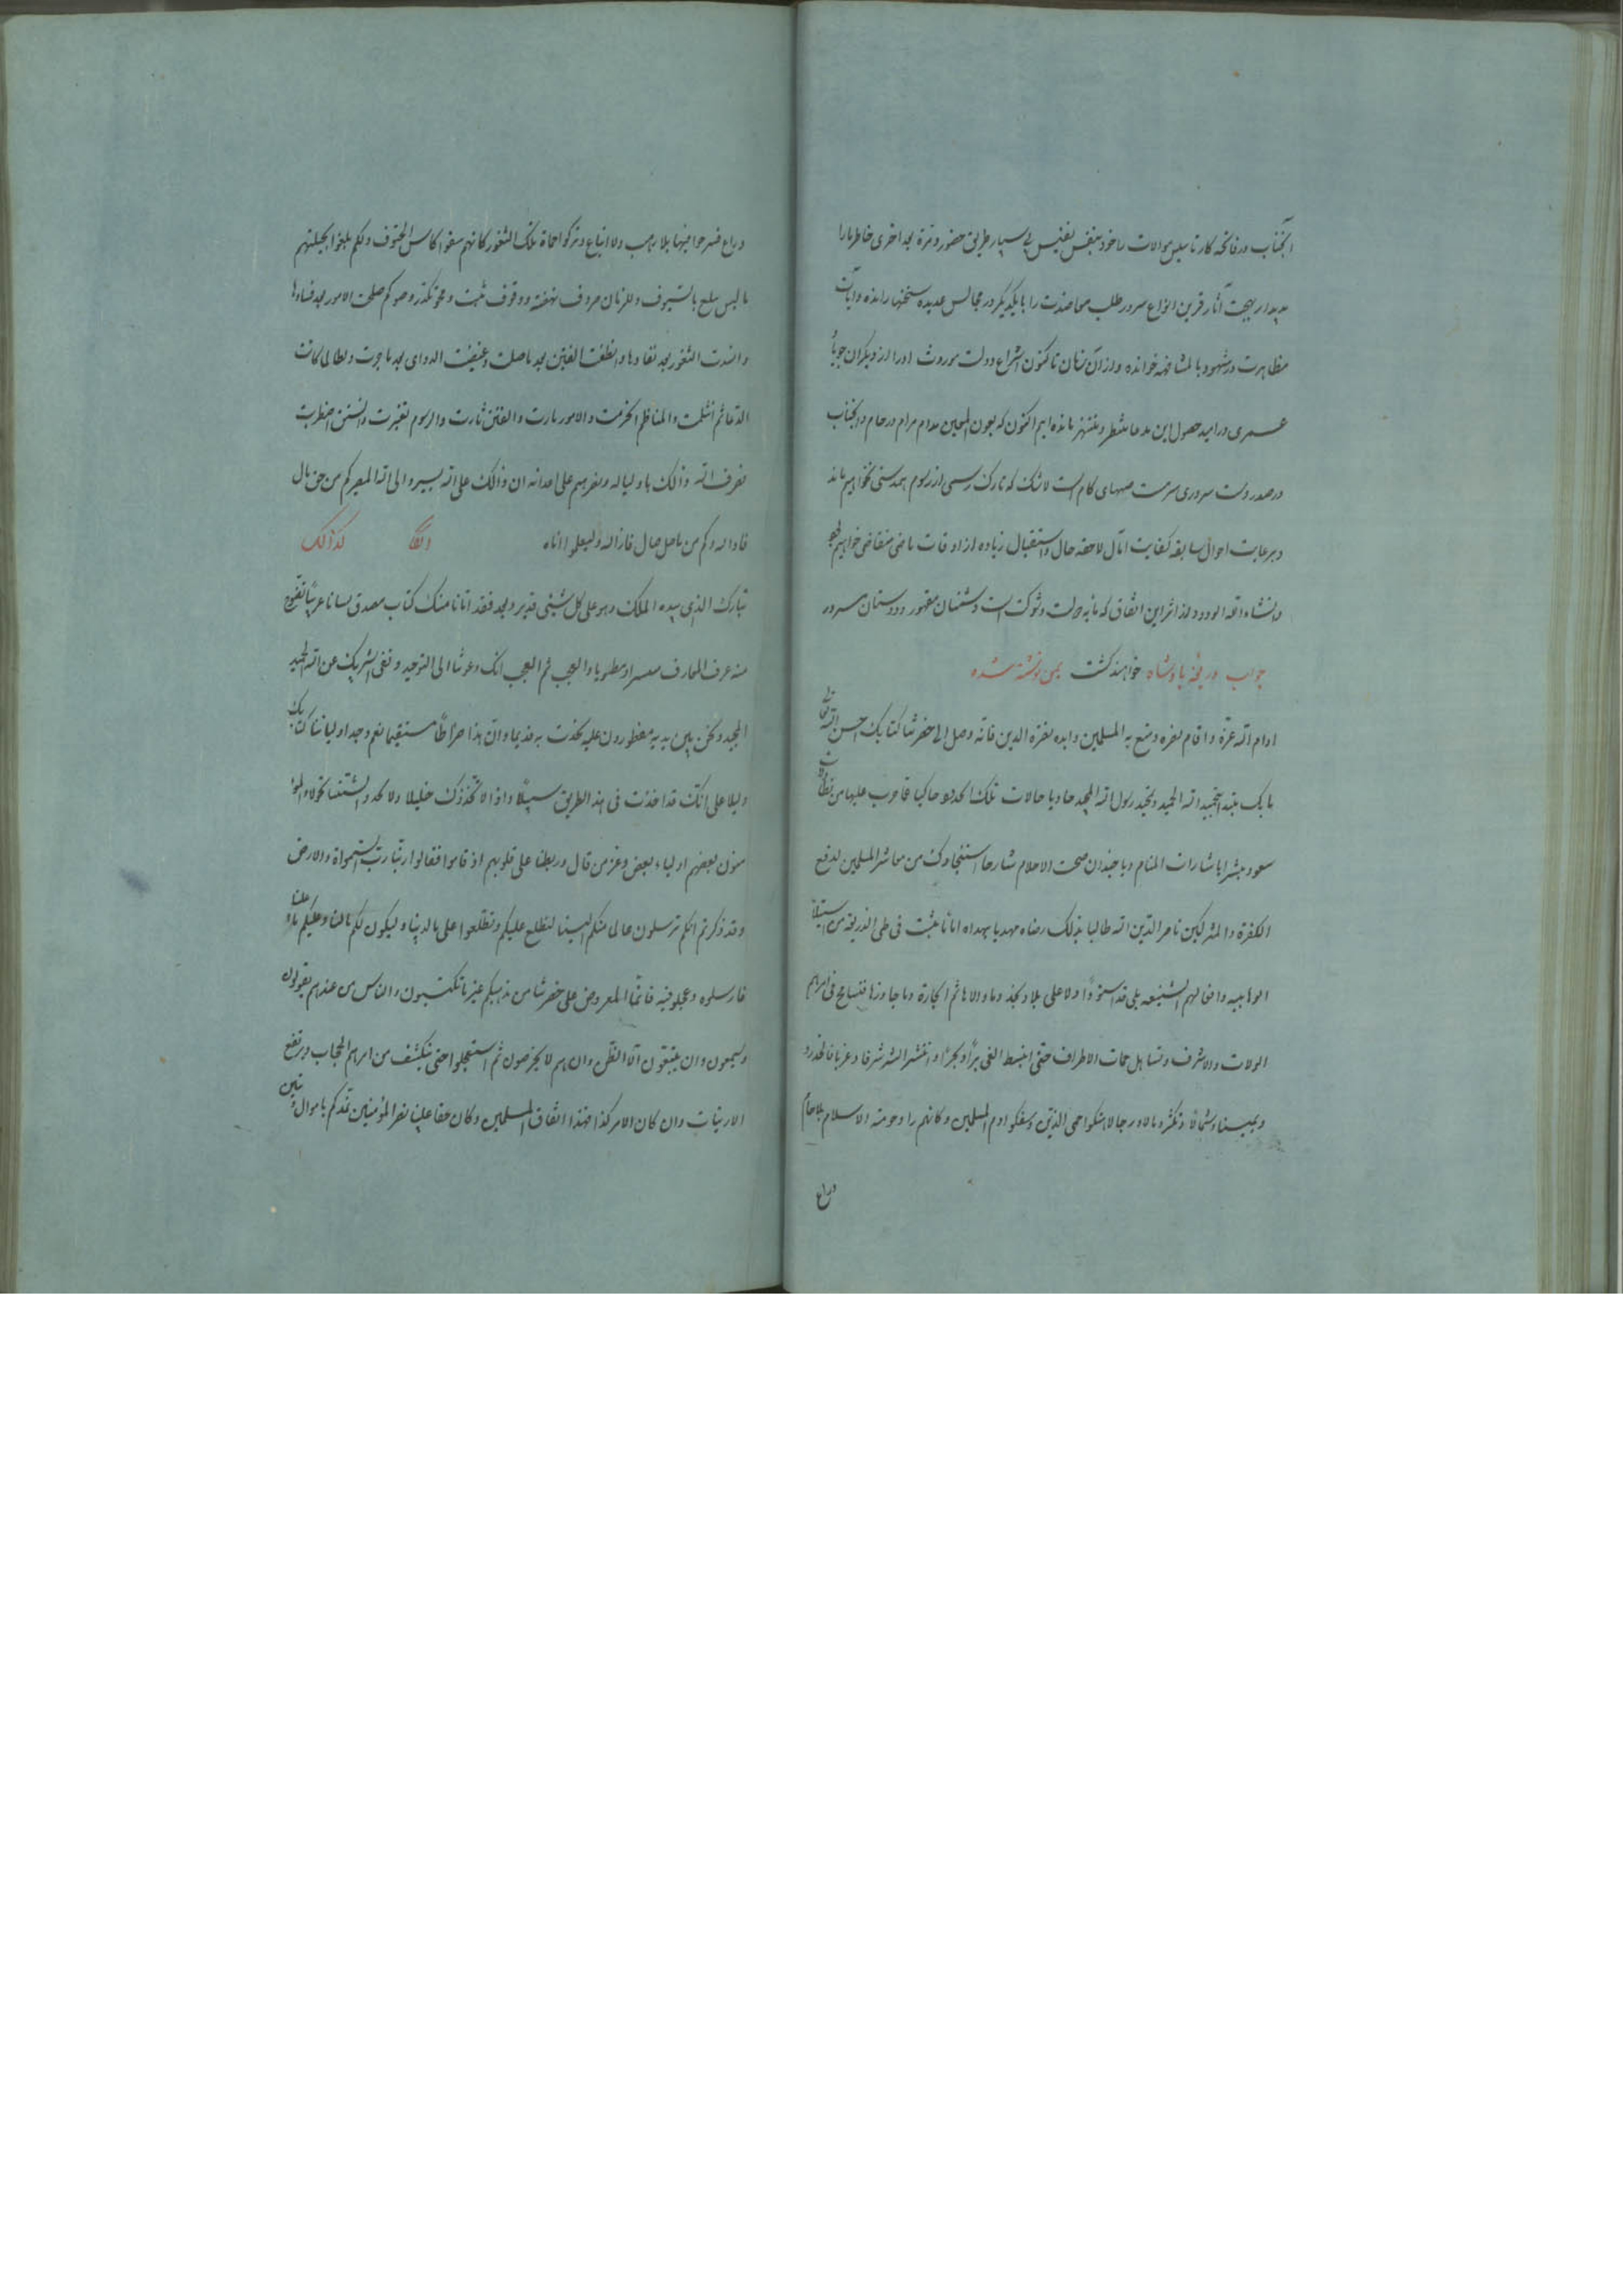 آنجناب در فاتحه کار تاسیس موالات را خود بنفس نفیس پی سپار طریق حضور و مرة بعد اخری خاطر ما را
بدیدار بهجت آثار قرین انواع سرور طلب معاضدت را با یکدیگر در مجالس عدیده سخنها رانده و آیات
مظاهرت در شهود بالمشافهه خوانده و از آن زمان تا کنون انتزاع دولت موروث او را از دیگران جویا
عمری در امید حصول این مدعا منتظر و منتهز مانده ایم اکنون که بعون المعین مدام مرام در جام و آنجناب
در صدر دولت سروری سرمست صهبای کام است لاشک که تارک رسمی از رسوم همدستی نخواهیم ماند
و برعایت احوال سابقه کفایت آمال لاحقه حال و استقبال زیاده از اوقات ماضی متقاضی خواهیم
و انشاء الله الودود از اثر این اتفاق که مایه دولت و شوکت است دشمنان مقهور و دوستان مسرور
خواهند گشت جواب در یغه پادشاه یمن نوشته شده
ادام الله عزه و اقام نصره و متع به المسلمین و ایده بنصرة الدین فانه وصل الی حضرتنا کتابک احسن الله تعالی
مآبک مبتدا بتحمید الله الحمید و تمجید رسول الله المجید حاویا حالات تلک الحدود حاکیا عما وجب علیها من تطاولات
سعود مبشرا باشارات المنام ویا حبذا ان صحت الاحلام شارحا استنجادک من معاشر المسلمین لدفع
الکفرة والمشرکین ناصر الدین الله طالبا بذلک رضاه مهدیا بهداه اما ما نمقت فی طی الذریعه من استیلاء
الوهابیه وافعالهم الشنیعه بلی قد استحوذوا اولا علی بلاد نجد وما والاها ثم الحجازة وما جاوزها فتسامح فی امرهم
الولات والاشراف وتساهل حمات الاطراف حتی انبسط الغی برا وبحرا وانتشر الشر شرقا وغربا فانحدروا
ویمینا وشمالا وتکثروا مالا ورجالا هتکوا حمی الدین وسفکوا دم المسلمین وکانهم راوا حومة الاسلام بلا حام
وراع
وراع فسرحوا فیها بلا رهب ولا اتباع وترکوا حماة تلک الثغور کانهم سقوا کاس الحتوف ولکم بلغوا بحیلتهم
ما لیس یبلغ بالسیوف وللزمان صروف نهضه ووقوف مثبت ومحو تکدر وصحو کم صلحت الامور بعد فسادها
وانسدت الثغور بعد نفادها وانطفت الفتن بعد ما صلت وعفیفت الدواهی بعد ما جرت ولطالما کانت
الدعائم انثلمت والمناظم انخرمت والامور بارت والفتن ثارت والرسوم تغیرت والسنن اضطربت
تعرف الله وذالک باولیائه ونصرهم علی اعدائه ان ذالک علی الله یسیر والی الله المصیر کم من حق بال
فاداله وکم من باطل صال فازاله ولیعلوا اناه وانه کذالک
تبارک الذی بیده الملک وهو علی کل شیئی قدیر وبعد فقد اتانا منک کتاب مصدق لسانا عربیا تفوح
منه عرف المعارف منثورا ومطویا والعجب ثم العجب انک دعوتنا الی التوحید ونفی الشریک عن الله الحمید
المجید ونحن بین یدیه مفطورون علیه نحدث به قدیما وان هذا صراطا مستقیما نعم وجد اولیائنا کتابک
دلیلا علی انک قد اخذت فی هذا الطریق سبیلا واذا لاتخذوک خلیلا ولا نحد والسنتنا نحو لاء المؤ
منون بعضهم اولیاء بعض وعز من قال وربطنا علی قلوبهم اذ قاموا فقالوا ربنا رب السمواة والارض
وقد ذکرتم انکم ترسلون عالما منکم الینا لنطلع علیکم وتطلعوا علی ما لدینا ولیکون لکم ما لنا وعلیکم ما علینا
فارسلوه وعجلو فیه فانما المعروض علی حضرتنا من مذهبکم غیر ما تکتبون والناس من عندهم یقولون
ویسمعون وان یتبعون الا الظن وان هم لا یخرصون ثم استعجلوا حتی ینکشف من امرهم الحجاب ویرتفع
الارتیاب وان کان الامر کذا فهذا اتفاق المسلمین وکان حقا علینا نصر المؤمنین نمدکم باموال وبنین